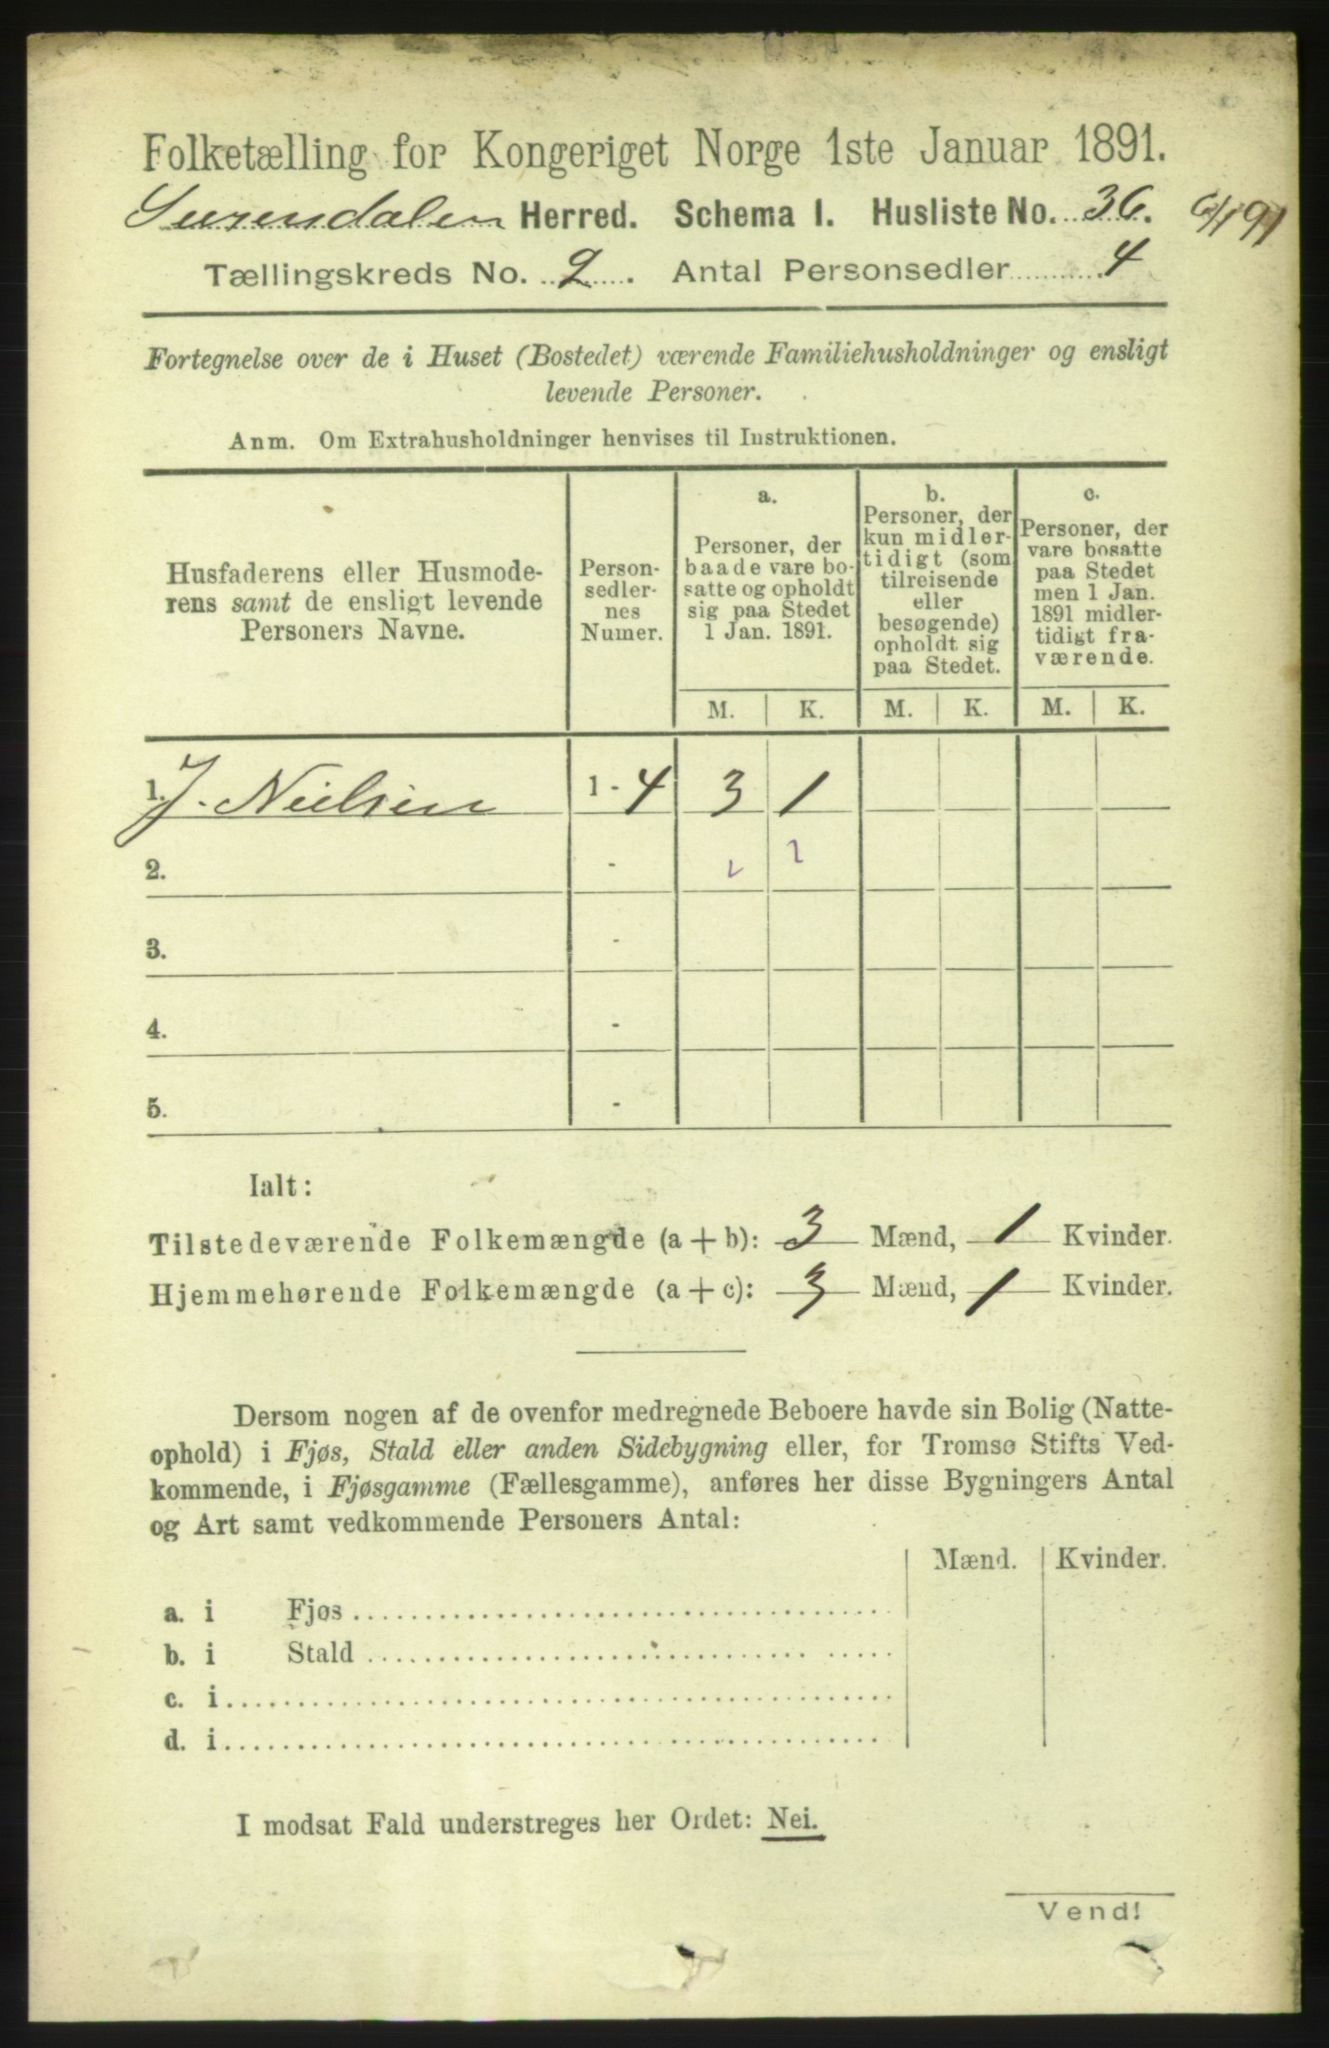 Folketælling for Kongeriget Norge 1ste Januar 1891.
Surendalen Herred. Schema I. Husliste No. 36. 6/1 91
Tællingskreds No. 2. Antal Personsedler 4
Fortegnelse over de i Huset (Bostedet) værende Familiehusholdninger og ensligt
levende Personer.
Anm. Om Extrahusholdninger henvises til Instruktionen.
Husfaderens eller Husmode-
rens samt de ensligt levende
Personers Navne.
Person-
sedler-
nes
Numer.
a.
Personer, der
baade vare bo-
satte og opholdt
sig paa Stedet
1 Jan. 1891.
b.
Personer, der
kun midler-
tidigt (som
tilreisende
eller
besøgende)
opholdt sig
paa Stedet.
c.
Personer, der
vare bosatte
paa Stedet
men 1 Jan.
1891 midler-
tidigt fra-
værende.
M. K. M. K. M. K.
1. J. Nielsen 1 - 4 3 1
2. - 2 2
3. -
4. -
5. -
Ialt:
Tilstedeværende Folkemængde (a + b): 3 Mænd, 1 Kvinder.
Hjemmehørende Folkemængde (a + c): 3 Mænd, 1 Kvinder.
Dersom nogen af de ovenfor medregnede Beboere havde sin Bolig (Natte-
ophold) i Fjøs, Stald eller anden Sidebygning eller, for Tromsø Stifts Ved-
kommende, i Fjøsgamme (Fællesgamme), anføres her disse Bygningers Antal
og Art samt vedkommende Personers Antal:
Mænd. Kvinder.
a. i Fjøs
b. i Stald
c. i
d. i
I modsat Fald understreges her Ordet: Nei.
Vend!